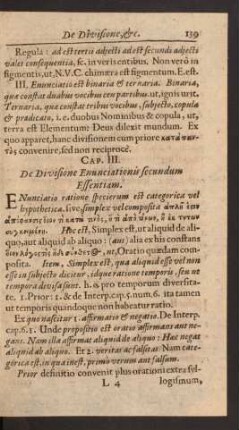 De Divisione, &c. 139
Regula: ad est tertii adjecti ad est secundi adjecti
valet consequentia, sc. in veris entibus. Non verò in
figmentis, ut, N.V.C. chimæra est figmentum, E. est.
III. Enunciatio est binaria & ternaria. Binaria,
quæ constat duabus vocibus ceu partibus: ut, ignis urit.
Ternaria, quæ constat tribus vocibus, subjecto, copula
& prædicato, i.e. duobus Nominibus & copula, ut,
terra est Elementum: Deus dilexit mundum. Ex
quo apparet, hanc divisionem cum priore
convenire, sed non reciprocè.
CAP. III.
De Divisione Enunciationis secundum
Essentiam.
ENunciatio ratione specierum est categorica vel
hypothetica, sive simplex vel composita
Hæc est, Simplex est, ut aliquid de ali-
quo, aut aliquid ab aliquo: (aut) alia ex his constans
ut, Oratio quædam com-
posita. Item, Simplex est, quæ aliquid esse vel non
esse in subjecto dicitur, idque ratione temporis, seu ut
tempora divisa sunt. h. e. pro temporum diversita-
te. 1. Prior: 1. & de Interp. cap. 5. num. 6. ita tamen
ut temporis quandoque non habeatur ratio.
Ex quo nascitur 1. affirmatio & negatio. De Interp.
cap. 6. 1. Unde propositio est oratio affirmans aut ne-
gans. Nam illa affirmat aliquid de aliquo: Hæc negat
aliquid ab aliquo. Et 2. veritas ac falsitas. Nam cate-
gorica est, in qua inest, primo verum aut falsum.
Prior definitio convenit plus orationi extra syl-
L 4 logismum,